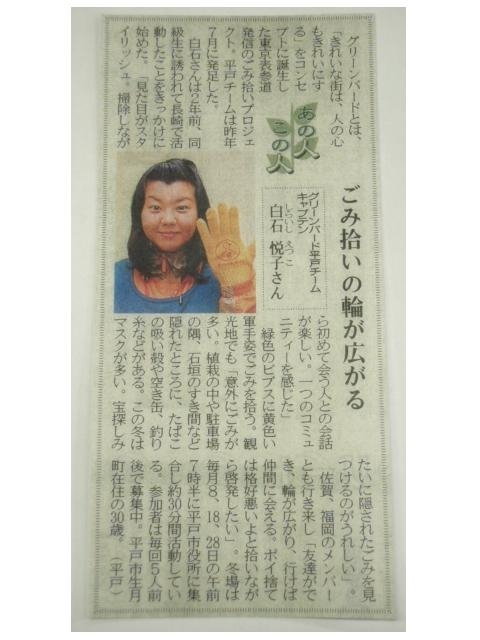 ごみ拾いの輪が広がる
あの人
この人
グリーンバード平戸チーム
キャプテン
しらいし えつこ
白石 悦子さん
グリーンバードとは、
「きれいな街は、人の心
もきれいにす
る」をコンセ
プトに誕生し
た東京表参道
発信のごみ拾いプロジェ
クト。平戸チームは昨年
7月に発足した。
白石さんは2年前、同
級生に誘われて長崎で活
動したことをきっかけに
始めた。「見た目がスタ
イリッシュ。掃除しなが
ら初めて会う人との会話
が楽しい。一つのコミュ
ニティーを感じた」
緑色のビブスに黄色い
軍手姿でごみを拾う。観
光地でも「意外にごみが
多い。植栽の中や駐車場
の隅、石垣のすき間など
隠れたところに、たばこ
の吸い殻や空き缶、釣り
糸などがある。この冬は
マスクが多い。宝探しみ
たいに隠されたごみを見
つけるのがうれしい」。
佐賀、福岡のメンバー
とも行き来し「友達がで
き、輪が広がり、行けば
仲間に会える。ポイ捨て
は格好悪いよと拾いなが
ら啓発したい」。冬場は
毎月8、18、28日の午前
7時半に平戸市役所に集
合し約30分間活動してい
る。参加者は毎回5人前
後で募集中。平戸市生月
町在住の30歳。（平戸）